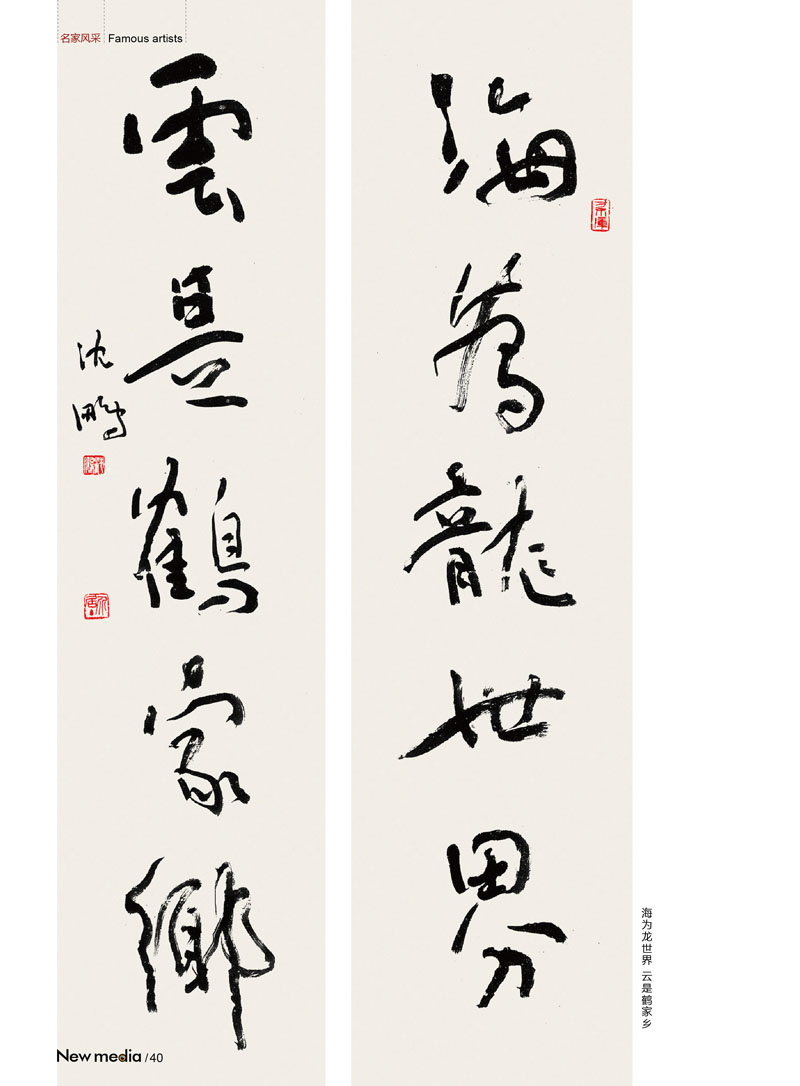 名家风采 Famous artists
海為龍世界
雲是鶴家鄉
沈鵬
海为龙世界 云是鹤家乡
New media /40